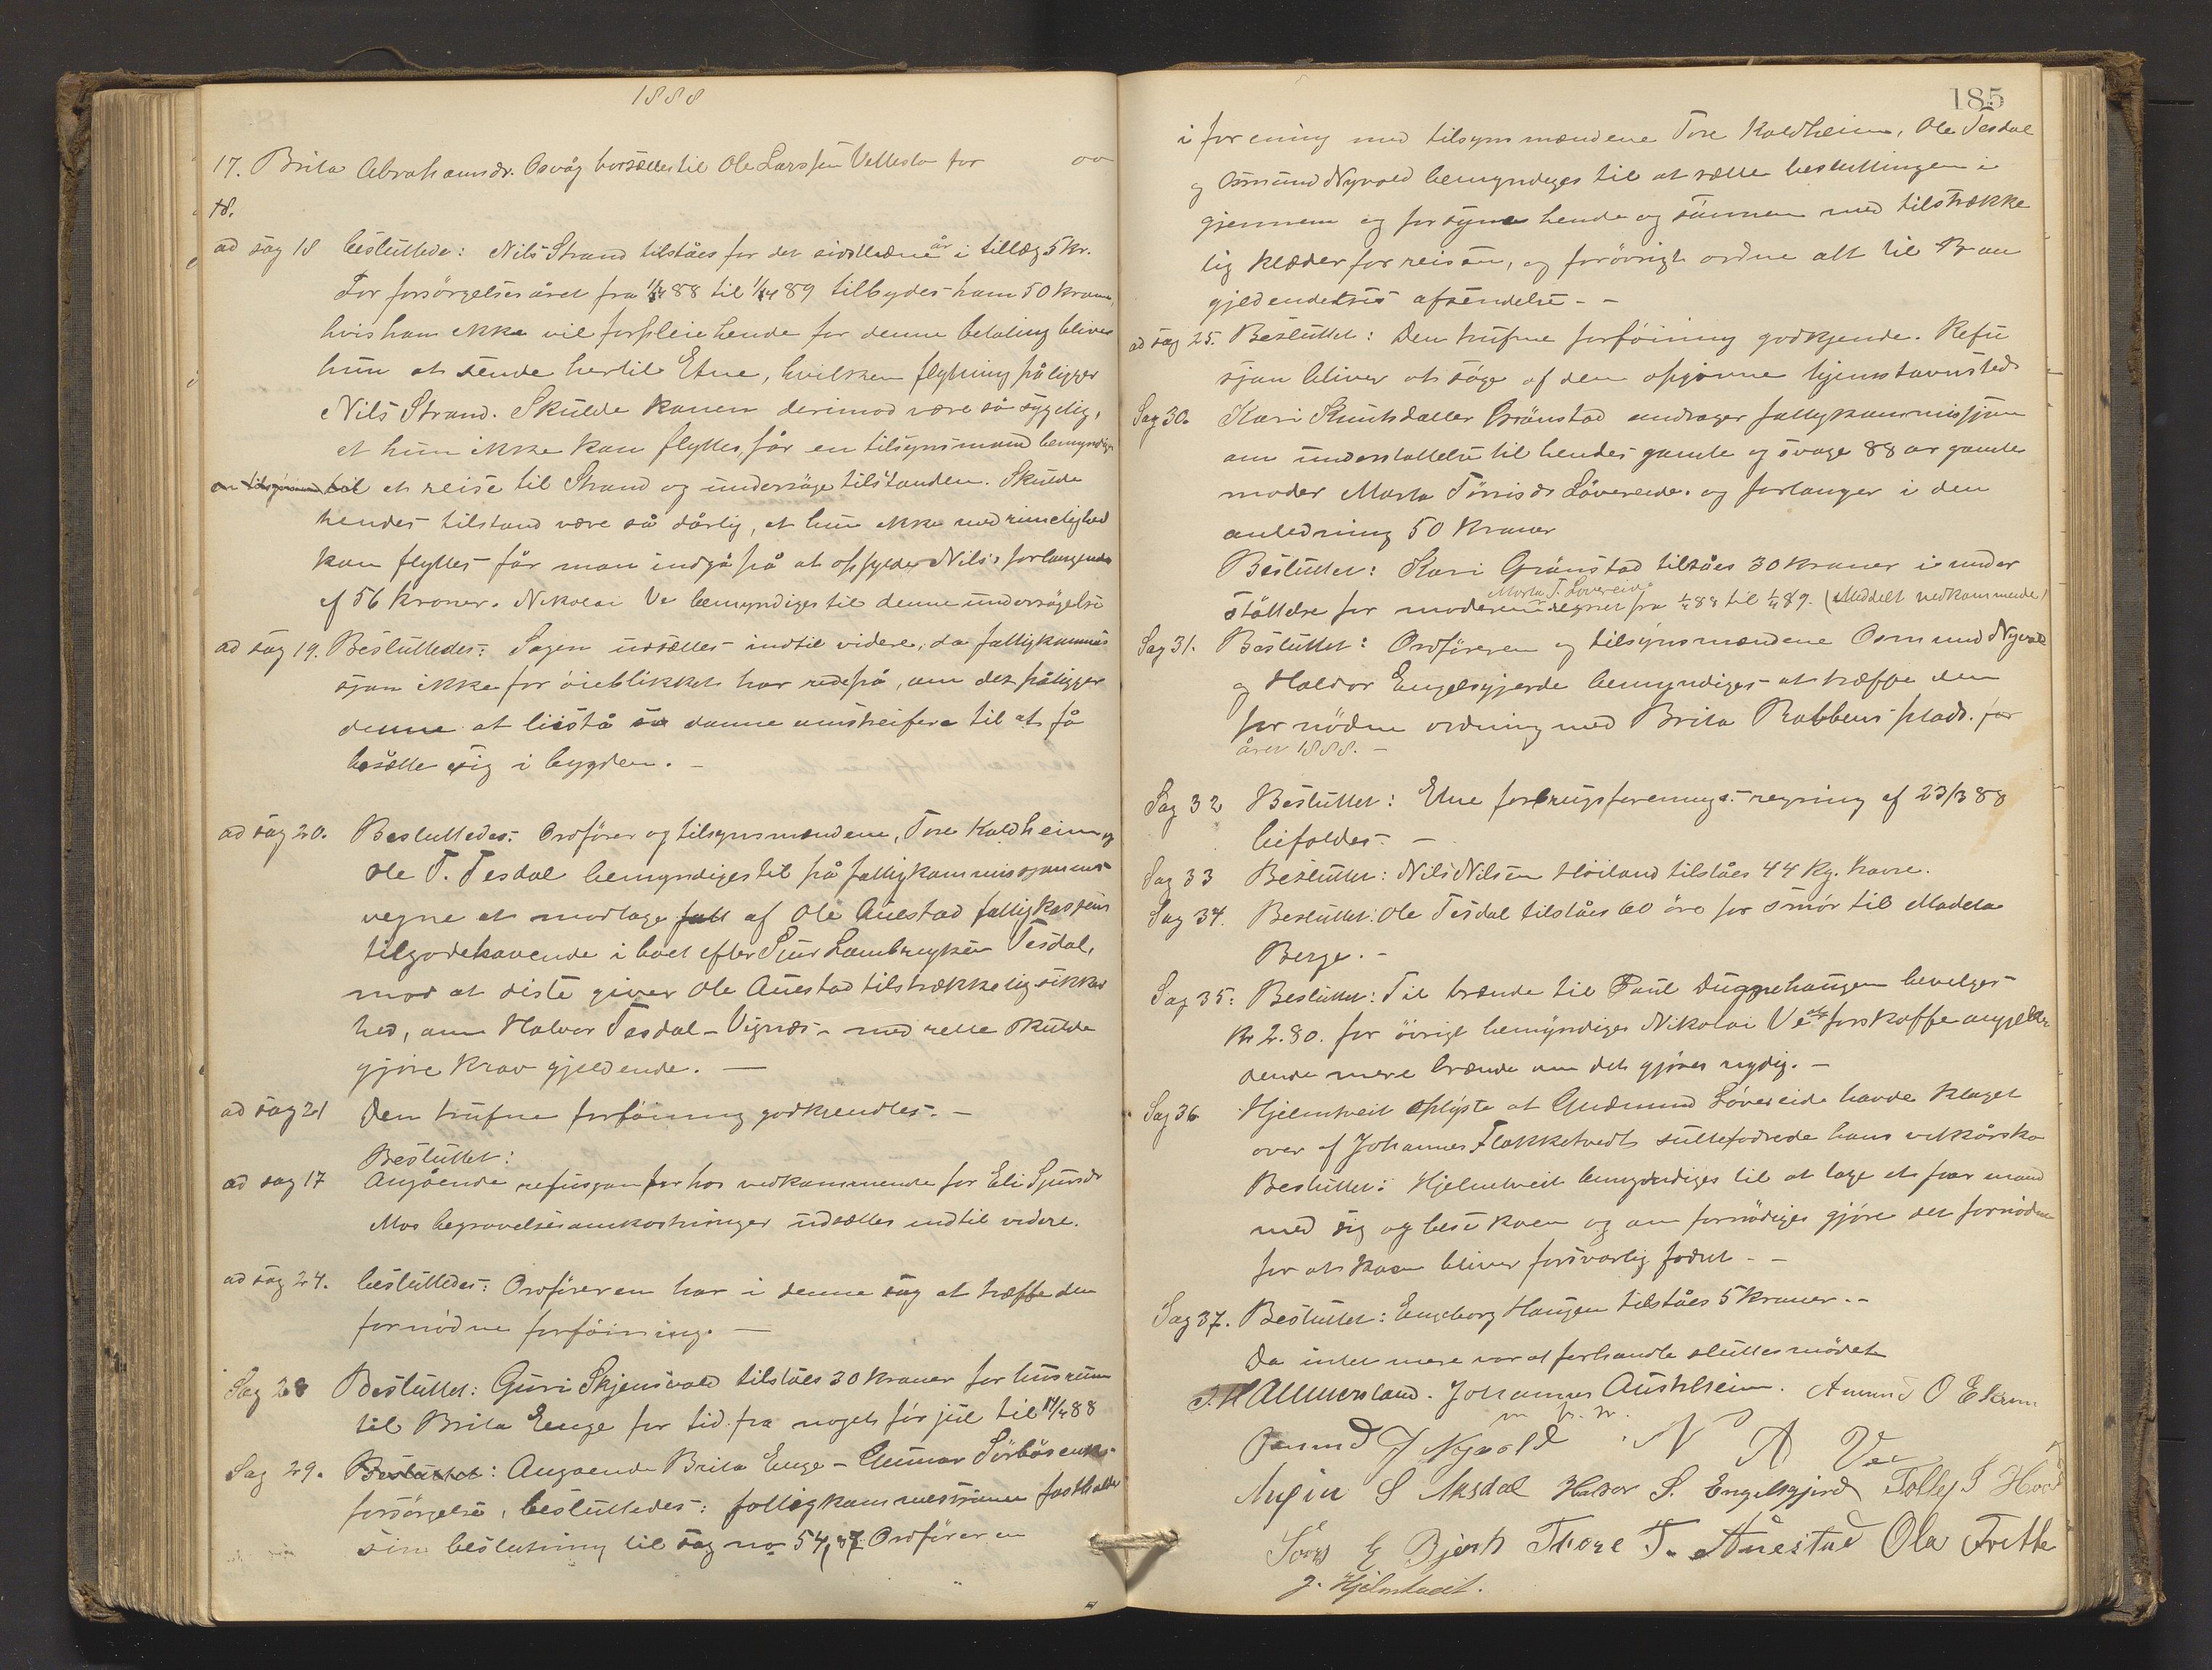 1888
17. Brita Abrahamsdr. Osvåg bortsættes til Ole Larssen Velleslo for oo
18.
ad sag 18 besluttede: Nils Strand tilståes for det sidstledne år i tillæg 5 kr.
For forsörgelsesåret fra 14/4 88 til 14/4 89 tilbydes ham 50 kroner,
hvis han ikke vil forpleie hende for denne betaling bliver
hun at sende hertil Etne, hvilken flytning påligger
Nils Strand. Skulde konen derimod være så sygelig,
at hun ikke kan flyttes, får en tilsynsmand bemyndig
en tilsynsmand til at reise til Strand og undersöge tilstanden. Skulde
hendes tilstand være så dårlig, at hun ikke med rimelighed
kan flyttes får man indgå på at opfylder Nils's forlangende
af 56 kroner. Nikolai Ve bemyndiges til denne undersögelse
ad sag 19. Besluttedes: Sagen udsættes indtil videre, da fattigkommis
sjon ikke for öieblikket har rede på, om det påligger
denne at bistå sa danne omstreifere til at få
bosætte sig i bygden. -
ad sag 20. Besluttedes: Ordförer og tilsynsmændene, Tore Kaldheim og
Ole T. Tesdal bemyndiges til på fattigkommissjonens
vegne at modtage fatt af Ole Auestad fattigkassens
tilgodehavende i boet efter Sjur Lambrugsken Tesdal,
mod at siste giver Ole Auestad tilstrækkelig sikker
hed, om Halvor Tesdal - Vignes - med rette skulde
gjöre krav gjeldende. -
ad sag 21 Den trufne forföining godkjendtes. -
Besluttet:
ad sag 17 Angående refusjon for hos vedkommende for Eli Sjursdr
Mos begravelsesomkostninger udsættes indtil videre.
ad sag 24. besluttedes: Ordföreren har i denne sag at træffe den
fornödne forföining. -
Sag 28 Besluttet: Guri Skjensvold tilståes 30 kroner for husrum
til Brita Enge for tid fra noget för jul til 14/4 88
Sag 29. Besluttet: Angaende Brita Enge - Gunnar Sörbösens
forsörgelse, besluttedes: fattigkommissionen fastholder
sin beslutning til sag no 54, 87. Ordföreren
185
i forening med tilsynsmændene Tore Kaldheim, Ole Tesdal
og Osmund Nyvold bemyndiges til at sætte beslutningen i
gjennem og forsyne hende og sönnen med tilstrække
lig klæder for reisen, og forövrigt ordne alt til Bran
gjeldendetses afsendelse - -
ad sag 25. Besluttet: Den trufne forföining godkjende. Refu
sjon bliver at söge af den opgivne hjemstavnsted
Sag 30. Kari Knutsdatter Grönstad andrager fattigkommissjon
om understöttelse til hendes gamle og svage 88 ar gamle
moder Marta Tönnisdr Lövereide. og forlanger i den
anledning 50 kroner
Besluttet: Kari Grönstad tilståes 30 kroner i under
Marta T. Lövereide
stöttelse for moderen regnet fra 1/4 88 til 1/4 89. (Meddelt vedkommende)
Sag 31. Besluttet: Ordföreren og tilsynsmændene Osmund Nyvold
og Haldor Engelsgjerde bemyndiges at træffe den
for nödne ordning med Brita Rabbens plads. for
året 1888. -
Sag 32 Besluttet: Etne forbrugsforenings regning af 23/3 88
bifoldes. -
Sag 33 Besluttet: Nils Nilsen Höiland tilståes 44 kg. havre.
Sag 34. Besluttet: Ole Tesdal tilståes 60 öre for smör til Madela
Berge. -
Sag 35: Besluttet: Til brænde til Poul Duggehaugen bevilges
kr 2.80. for övrigt bemyndiges Nikolai Ve at forskaffe angjel
dende mere brænde om det gjöres nydig. -
Sag 36 Hjelmtveit oplyste at Gudmund Lövereide havde klaget
over at Johannes Flakketvedt sultefodrede hans vilkårsko
Besluttet: Hjelmtveit bemyndiges til at tage et par mand
med sig og bese koen og om fornödiges gjöre det fornödne
for at koen bliver forsvarlig fodret - -
Sag 37. Besluttet: Engeborg Haugen tilståes 5 kroner. -
Da intet mere var at forhandle sluttes mödet
J. H Allmersland. Johannes Austrheim. Amund O Ekren
m. p. p.
Osmund J Nyvold N A Ve
S Aksdal Haldor S. Engelsgjerd Tolley J
E Bjerk Thore T. Auestad Ola Frette
J. Hjelmtveit.